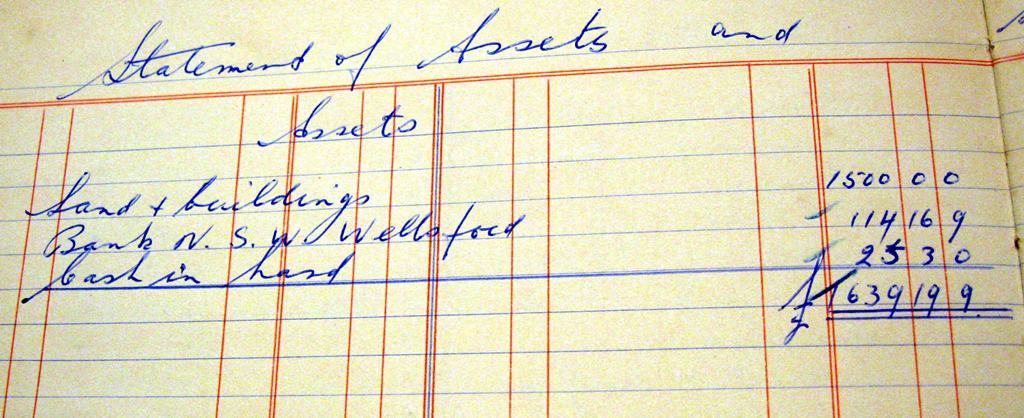 Statement of Assets and
Assets
Land + buildings 1500 0 0
Bank N. S. W Wellsford 114 16 9
Cash in hand 25 3 0
£ 1639 19 9